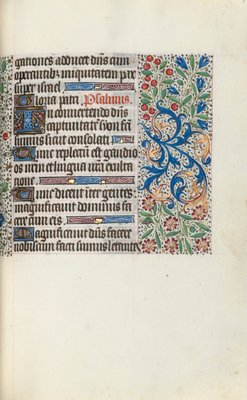 gationes adducet dñs cum
operantib; iniquitatem pax
super israel.
Gloria patri. Psalmus.
In convertendo dñs
captivitatē syon fac
ti sumus sicut consolati
Tunc repletū est gaudio
os nrm et lingua nrā exulta
cione.
Tunc dicent iter gentes
magnificavit dominus fa
cere cum eis.
Magnificavit dñs facere
nobiscum facti sumus letantes